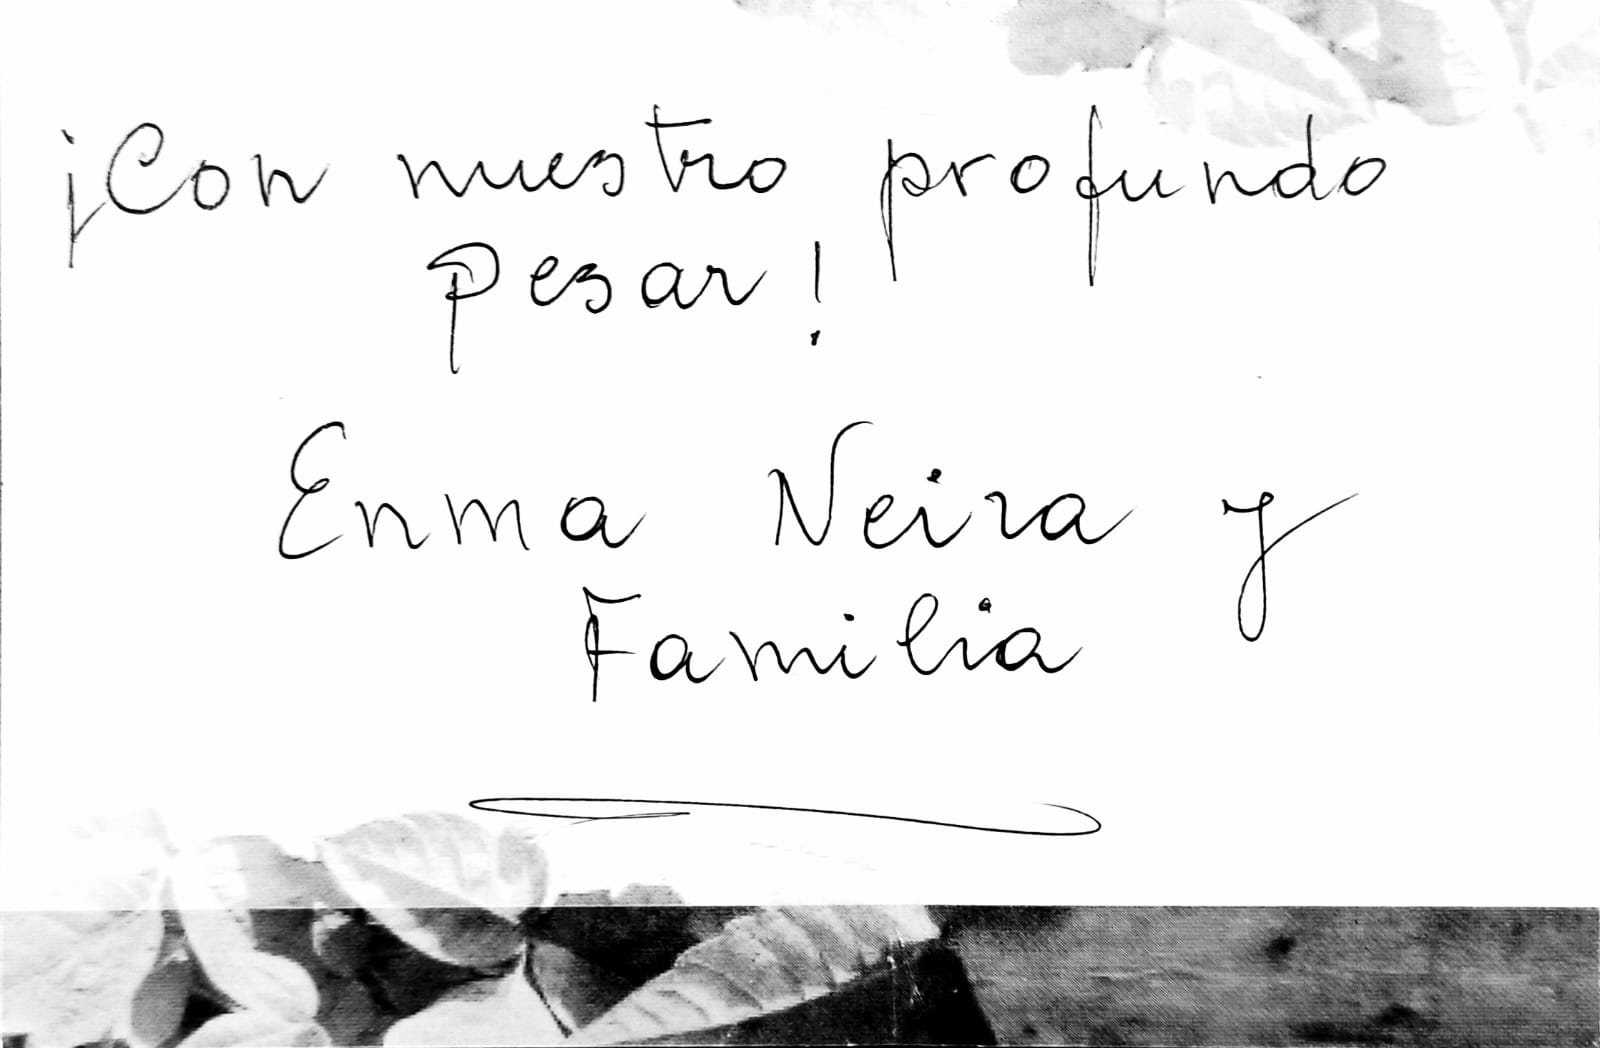 ¡Con nuestro profundo
pesar!
Enma Neira y
Familia